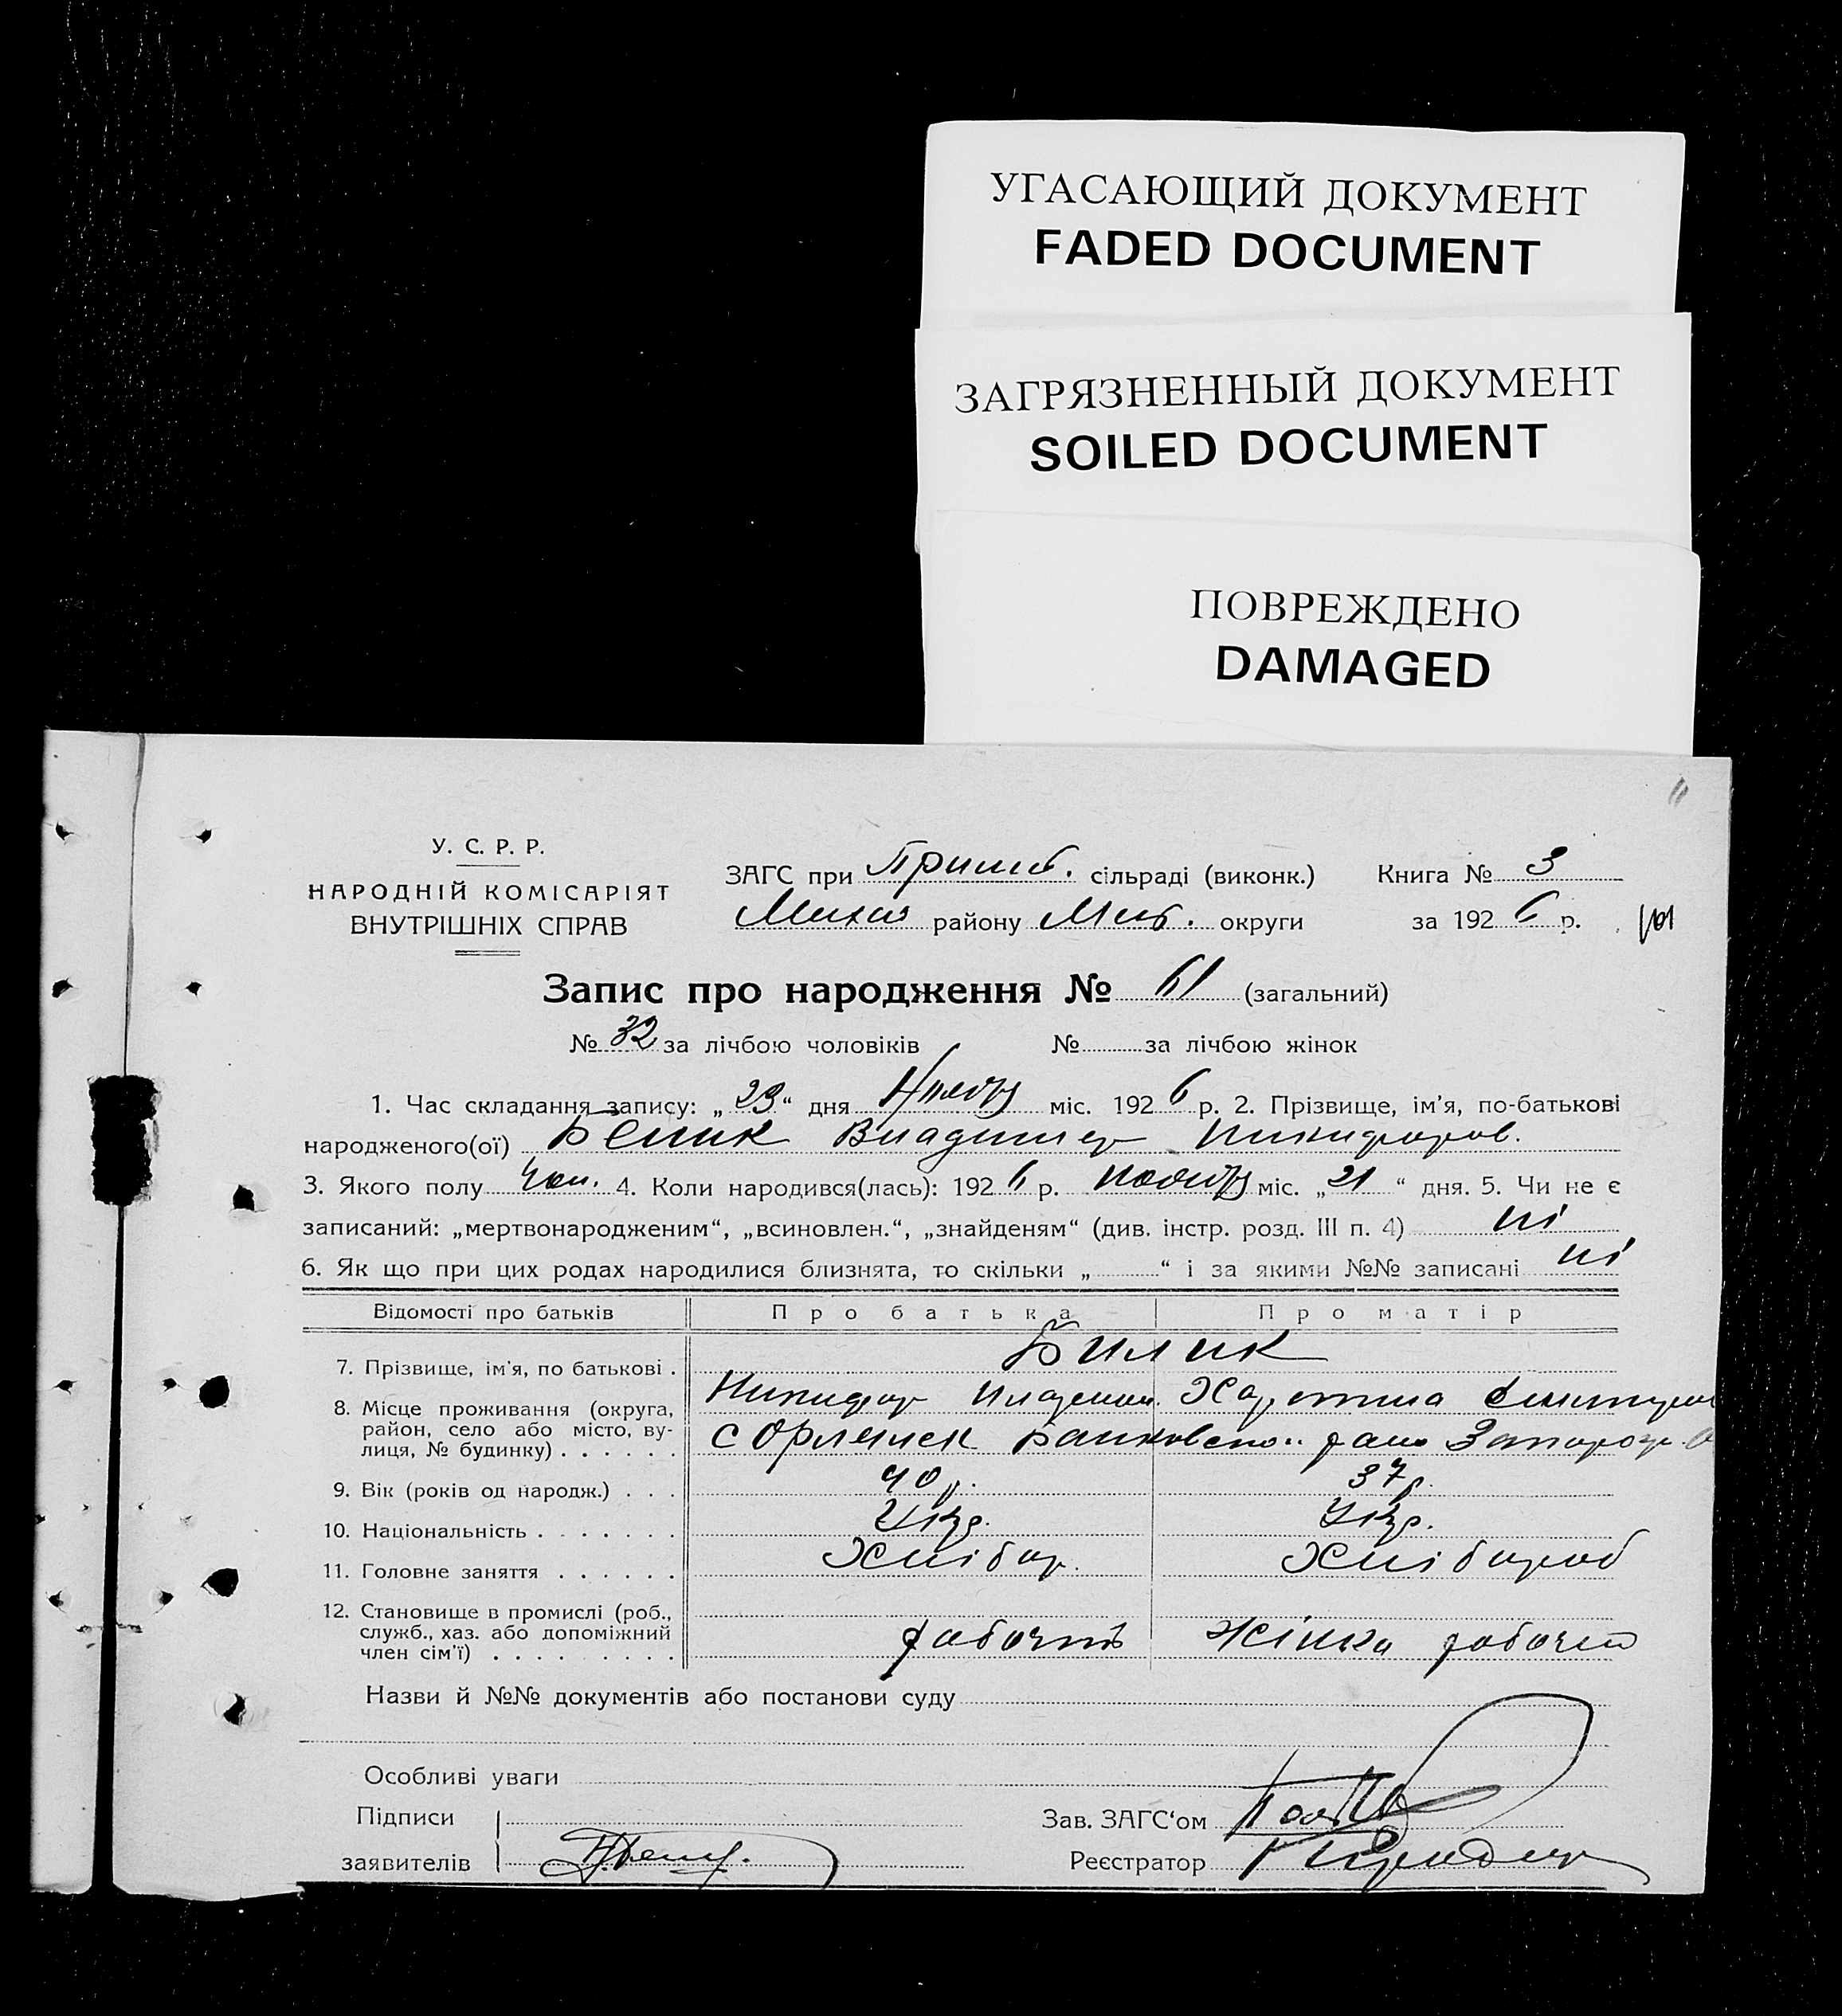 УГАСАЮЩИЙ ДОКУМЕНТ
FADED DOCUMENT
ЗАГРЯЗНЕННЫЙ ДОКУМЕНТ
SOILED DOCUMENT
ПОВРЕЖДЕНО
DAMAGED
У. С. Р. Р.
НАРОДНІЙ КОМІСАРІЯТ
ВНУТРІШНІХ СПРАВ
ЗАГС при Пришиб. сільраді (виконк.) Книга № 3
Михай району Мел. округи за 1926 р.
Запис про народження № 61 (загальний)
№ 32 за лічбою чоловіків № за лічбою жінок
1. Час складання запису: „23“ дня Ноября міс. 1926 р. 2. Прізвище, ім’я, по-батькові
народженого(ої) Белик Владимир Никифоров.
3. Якого полу Чол. 4. Коли народився(лась): 1926 р. Ноября міс. „21“ дня. 5. Чи не є
записаний: „мертвонародженим“, „всиновлен.“, „знайденям“ (див. інстр. розд. III п. 4) ні
6. Як що при цих родах народилися близнята, то скільки „ “ і за якими №№ записані ні
Відомості про батьків Про батька Про матір
7. Прізвище, ім’я, по батькові . Билик
Никифор Харитина
8. Місце проживання (округа,
район, село або місто, ву-
лиця, № будинку) . . . . . . с Орлянск
9. Вік (років од народж.) . . . 40 р. 37 р.
10. Національність . . . . . . . Укр. Укр.
11. Головне заняття . . . . . . Хлібор. Хлібороб
12. Становище в промислі (роб.,
служб., хаз. або допоміжний
член сім’ї) . . . . . . . . . рабочий Жінка рабочего
Назви й №№ документів або постанови суду
Особливі уваги
Підписи
заявителів
Зав. ЗАГС‘ом
Реєстратор